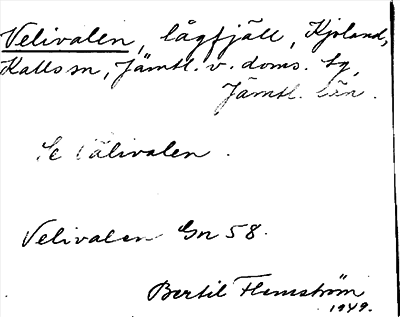 Velivalen, lågfjäll, Kjoland,
Kalls sn, Jämtl. v. doms. tg,
Jämtl. län.
Se Välivalen.
Velivalen Gn 58.
Bertil Flemström
1949.